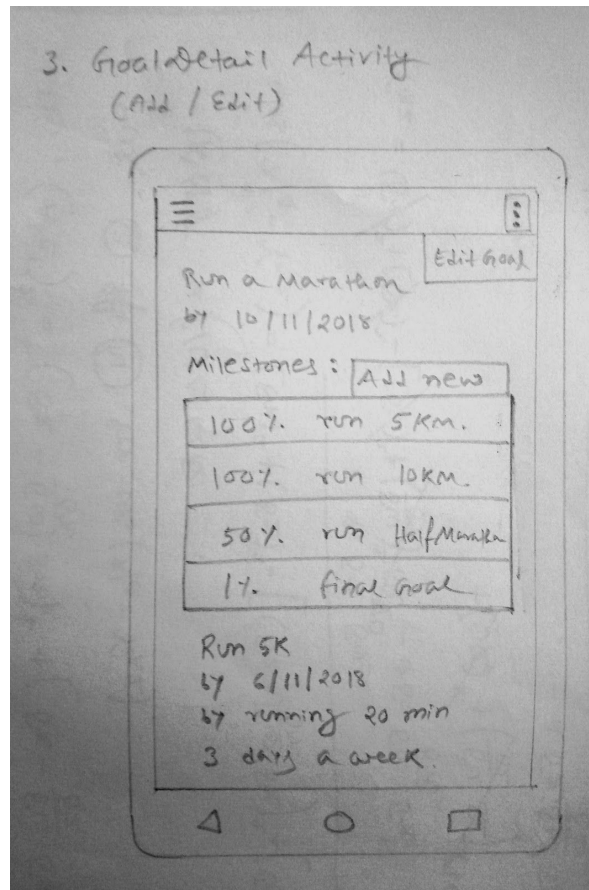 3. GoalDetail Activity
(Add / Edit)
Edit Goal
Run a Marathon
by 10/11/2018
Milestones :
Add new
100%. run 5KM.
100%. run 10KM.
50%. run Half Maratha
1%. final Goal
Run 5K
by 6/11/2018
by running 20 min
3 days a week.